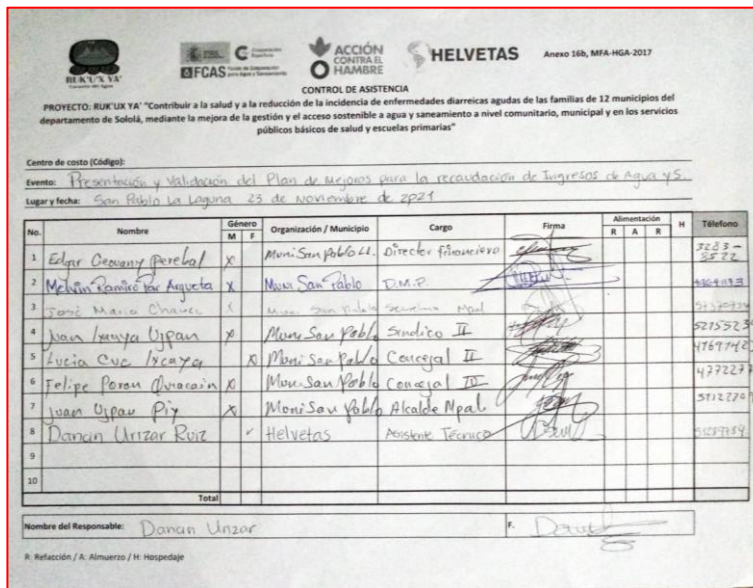 RUK'UX YA'
Corazón del Agua
Cooperación Española
FCAS Fondo de Cooperación para Agua y Saneamiento
ACCIÓN CONTRA EL HAMBRE
HELVETAS
Anexo 16b, MFA-HGA-2017
CONTROL DE ASISTENCIA
PROYECTO: RUK'UX YA' "Contribuir a la salud y a la reducción de la incidencia de enfermedades diarreicas agudas de las familias de 12 municipios del
departamento de Sololá, mediante la mejora de la gestión y el acceso sostenible a agua y saneamiento a nivel comunitario, municipal y en los servicios
públicos básicos de salud y escuelas primarias"
Centro de costo (Código):
Evento: Presentación y Validación del Plan de Mejoras para la recaudación de Ingresos de Agua y S
Lugar y fecha: San Pablo La Laguna 23 de Noviembre de 2021
No. Nombre Género Organización / Municipio Cargo Firma Alimentación H Teléfono
M F R A R
1 Edgar Geovany Perebal X Muni San Pablo LL. Director financiero 3283-8522
2 Melvin Ramiro Par Argueta X Muni San Pablo D.M.P.
3 José Maria Chavez X Muni San Pablo Mpal
4 Juan Ixcaya Ujpan X Muni San Pablo Sindico II
5 Lucia Cuc Ixcaya X Muni San Pablo Concejal II
6 Felipe X Muni San Pablo Concejal
7 Juan Ujpan X Muni San Pablo Alcalde Mpal
8 Dancin Urizar Ruiz ✓ Helvetas Asistente Técnico
9
10
Total
Nombre del Responsable: Dancin Urizar F.
R: Refacción / A: Almuerzo / H: Hospedaje